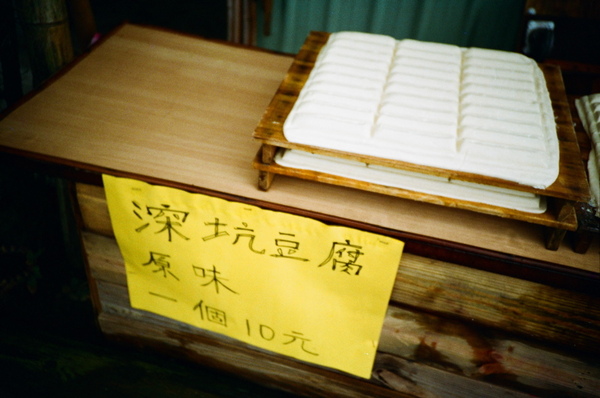 深坑豆腐
原味
一個10元